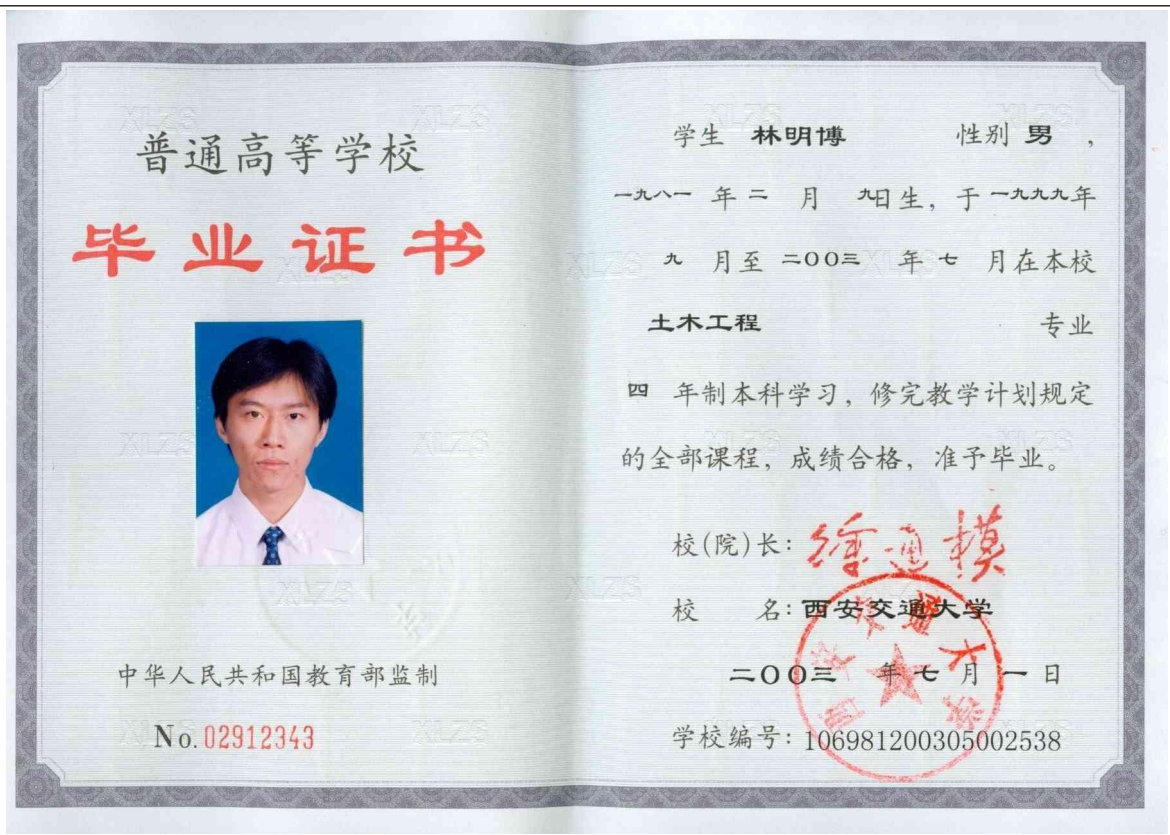 普通高等学校
毕业证书
中华人民共和国教育部监制
No. 02912343
学生 林明博 性别 男 ,
一九八一 年 二 月 九日生, 于 一九九九年
九 月至 二00三 年 七 月在本校
土木工程 专业
四 年制本科学习, 修完教学计划规定
的全部课程, 成绩合格, 准予毕业。
校(院)长: 徐通模
校 名: 西安交通大学
二00三 年 七 月 一 日
学校编号: 106981200305002538
西安交通大学
XLZS